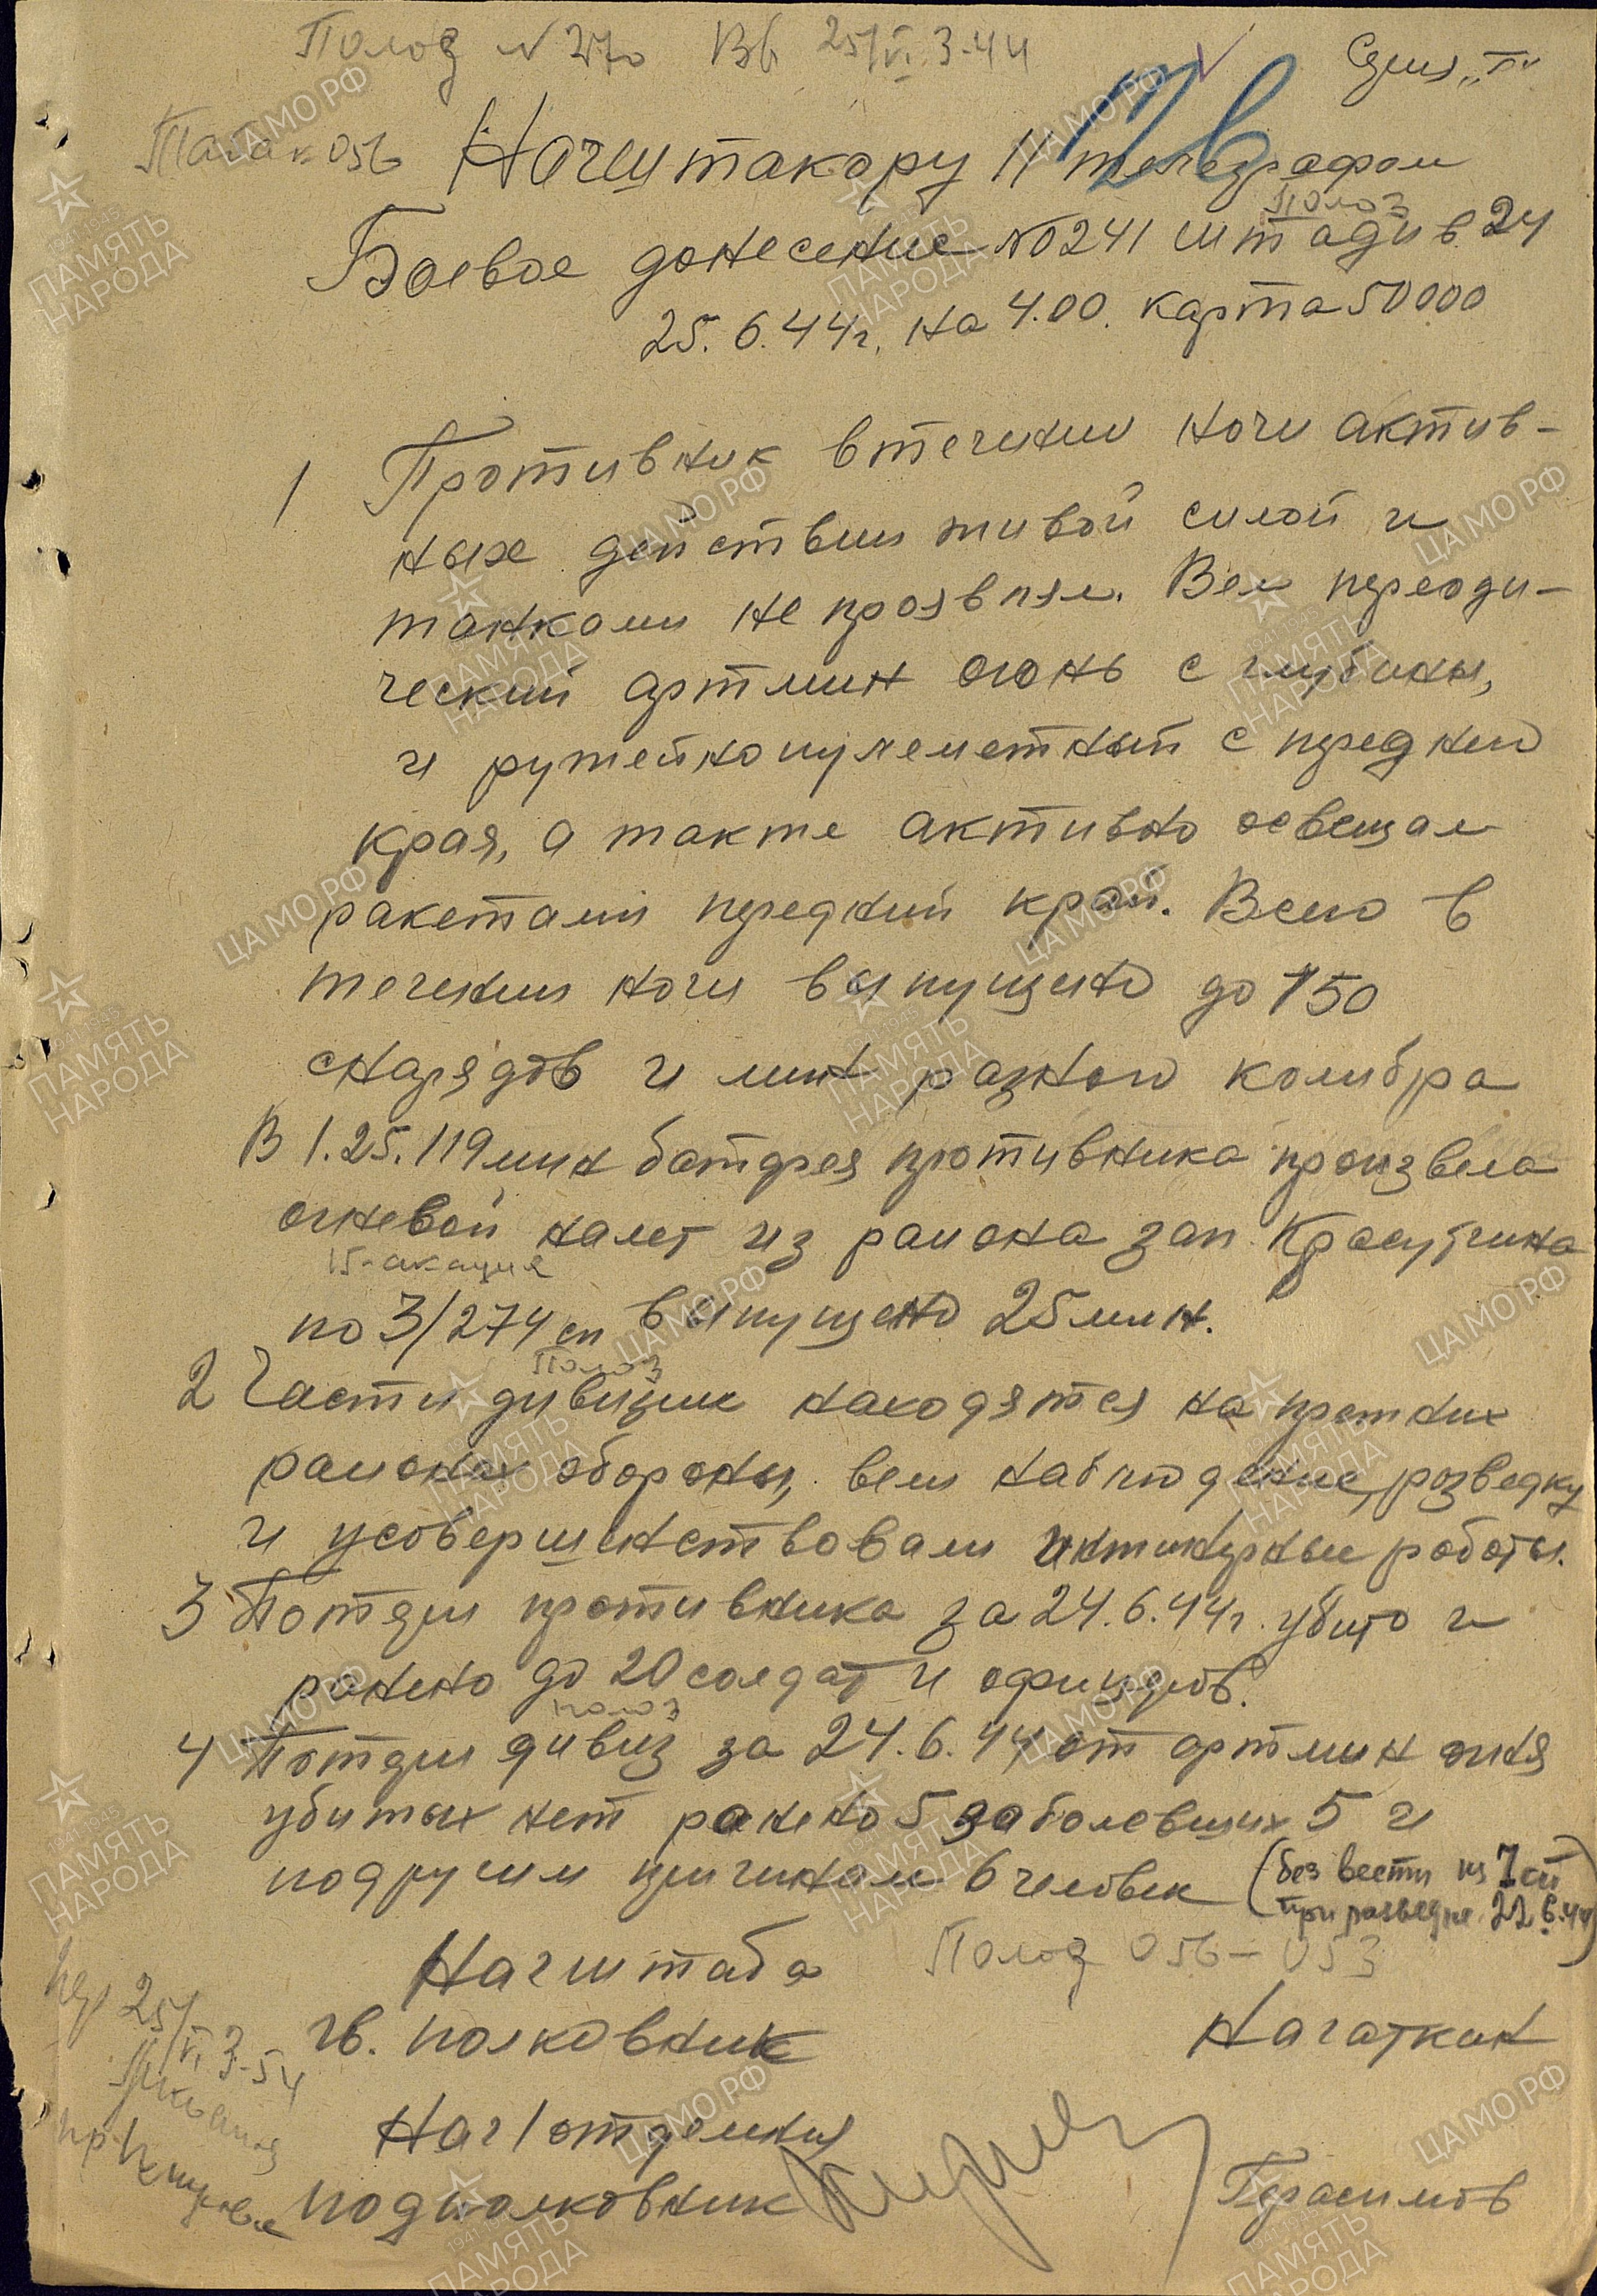 Полоз N 270 Вб 25/VI 3-44
Серия „Г“
056 Начштакору 11 телеграфом
Полоз
Боевое донесение №0241 штадив 24
25.6.44г. на 4.00. карта 50000
1 Противник втечении ночи актив-
ных действии живой силой и
танками не проявлял. Вел переоди-
ческий артмин огонь с глубины,
и ружейнопулеметный с переднего
края, а также активно освещал
ракетами передний край. Всего в
течении ночи выпущено до 150
снарядов и мин разного колибра
В 1.25. 119 мин батарея противника произвела
огневой налет из района зап. Красутина
15-акация
по 3/274 сп выпущено 25 мин.
Полоз
2 Части дивизии находятся на прежних
районах обороны, вели наблюдение, разведку
и усовершенствовали инжинерные работы.
3 Потери противника за 24.6.44г. убито и
ранено до 20 солдат и офицеров.
полоз
4 Потери дивиз за 24.6.44 от артмин огня
убитых нет ранено 5 заболевших 5 и
подругим причинам 6 человек (без вести из 7 сп
при разведке 22.6.44)
Начштаба Полоз 056-053
гв. полковник Нагаткин
пер 25/VI 3-54
Нач 1 отделения
подполковник Герасимов